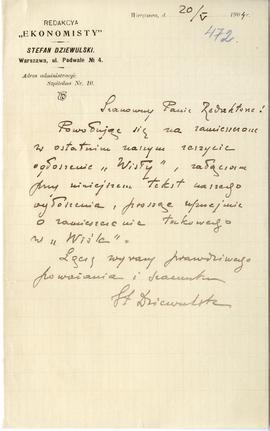 REDAKCYA
„EKONOMISTY”
STEFAN DZIEWULSKI.
Warszawa, ul. Podwale № 4.
Adres administracyi:
Szpitalna Nr. 10.
Warszawa, d. 20/V 1904 r.
472
Szanowny Panie Redaktorze!
Powołując się na zamieszczone
w ostatnim naszym zeszycie
ogłoszenie „Wisły”, załączam
przy niniejszem tekst naszego
ogłoszenia, prosząc uprzejmie
o zamieszczenie takowego
w „Wiśle”.
Łączę wyrazy prawdziwego
poważania i szacunku
St Dziewulski